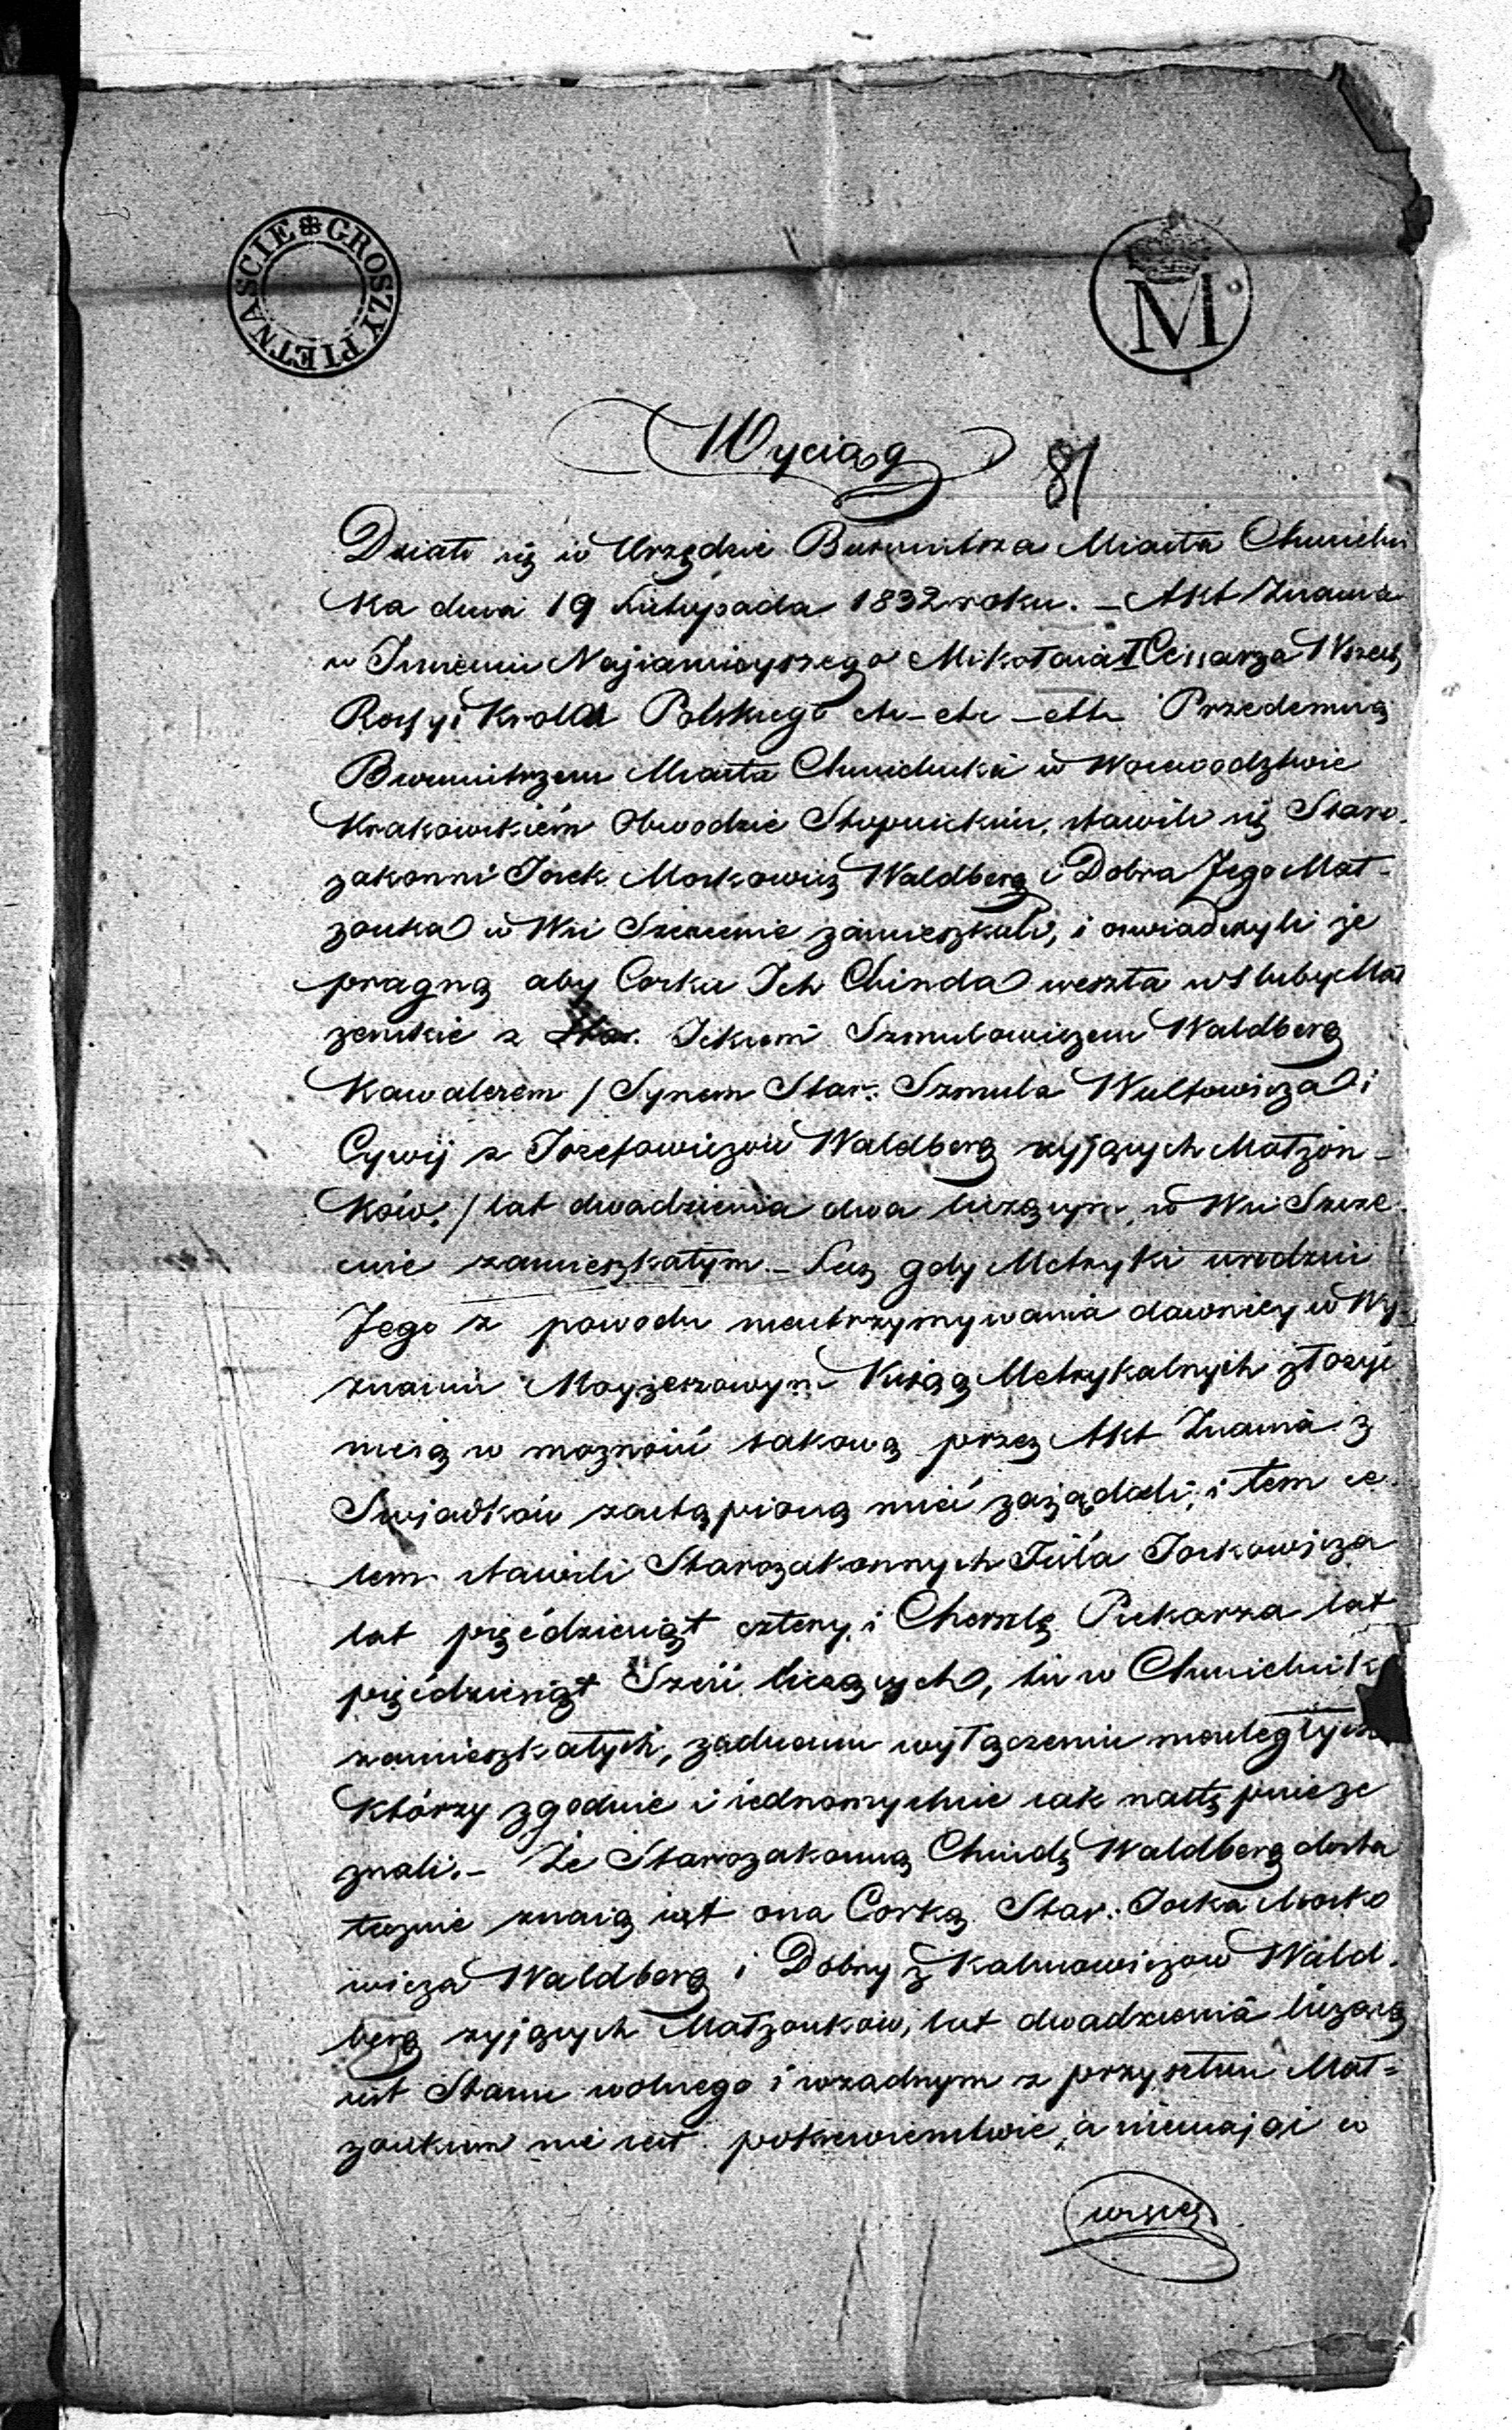 GROSZY PIĘTNAŚCIE
M
Wyciąg 81
Działo się w Urzędzie Burmistrza Miasta Chmielni
ka dnia 19 Listopada 1832 roku. – Akt Znania
w Imieniu Najiaśnieyszego Mikołaia I Cessarza Wszech
Rossyi Krola Polskiego etc – etc – etc Przedemną
Burmistrzem Miasta Chmielnika w Woiewodztwie
Krakowskiém Obwodzie Stopnickim, stawili się Staro
zakonni Josek Moskowicz Waldberg i Dobra Jego Mał-
zonka w Wsi Szczecnie zamieszkali, i oswiadczyli że
pragną aby Corka Ich Chinda weszła w Sluby Mał
zenskie z Star. Ickiem Szmulowiczem Waldberg
Kawalerem / Synem Star: Szmula Wulfowicza i
Cywij z Jozefowiczow Waldberg zyjących Małzon-
ków. / lat dwadziescia dwa liczącym, w Wsi Szcze
cnie zamieszkałym. – Lecz gdy Metryki urodzin
Jego z powodu nieutrzymywania dawniey w Wy-
znaniu Moyzeszowym Ksiąg Metrykalnych złozyć
niesą w moznosci takową przez Akt Znania z
Swiadków zastąpioną mieć zażądali, i tem ce
lem stawili Starozakonnych Joskowicza
lat pięćdziesiąt cztery, i Herszlę Piekarza lat
pięćdziesiąt Sześć liczących, tu w Chmielnik
zamieszkałych, żadnemu wyłączeniu nieuległych
Którzy zgodnie i iednomyslnie iak następuie ze
znali. – Że Starozakonną Chindę Waldberg dosta
tecznie znaią iest ona Corką Star: Joska Mosko
wicza Waldberg i Dobry z Kalmowiczow Wald-
berg zyjących Małzonkow, lat dwadziescia licząca
iest Stanu wolnego i wzadnym z przyszłem Mał-
zonkiem nie iest pokrewienstwie, a niemając w